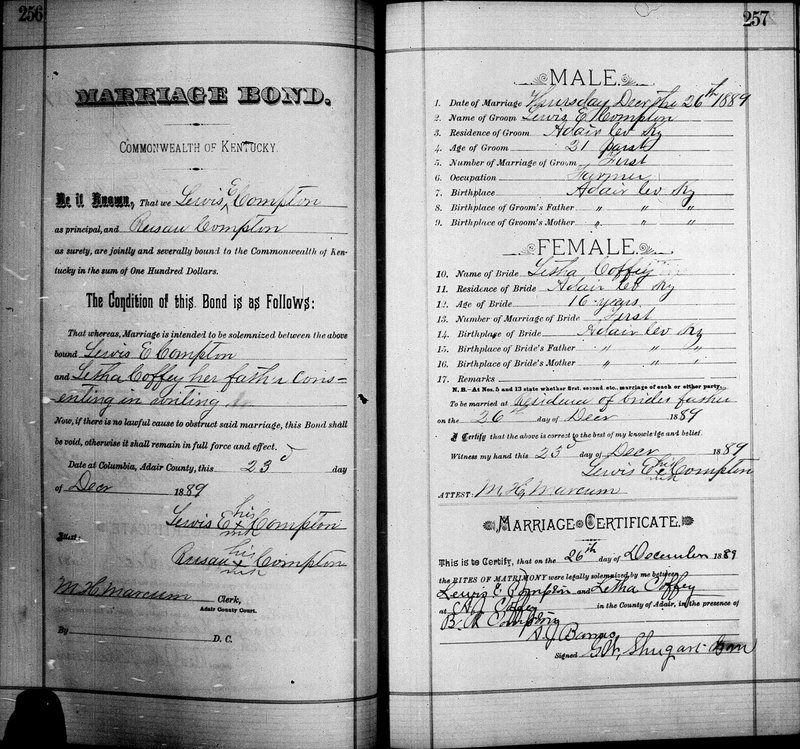 256
MARRIAGE BOND.
COMMONWEALTH OF KENTUCKY.
Be it Known, That we Lewis E Compton
as principal, and Reusau Compton
as surety, are jointly and severally bound to the Commonwealth of Ken-
tucky in the sum of One Hundred Dollars.
The Condition of this Bond is as Follows:
That whereas, Marriage is intended to be solemnized between the above
bound Lewis E Compton
and Letha Coffey her father Cons-
enting in writing
Now, if there is no lawful cause to obstruct said marriage, this Bond shall
be void, otherwise it shall remain in full force and effect.
Date at Columbia, Adair County, this 23d day
of Decr 1889
his
Lewis E x Compton
mk
Attest:
his
Reusau x Compton
mk
M H Marcum Clerk,
Adair County Court.
By D. C.
257
MALE.
1. Date of Marriage Thursday Decr the 26th 1889
2. Name of Groom Lewis E Compton
3. Residence of Groom Adair Co Ky
4. Age of Groom 21 past
5. Number of Marriage of Groom First
6. Occupation Farmer
7. Birthplace Adair Co Ky
8. Birthplace of Groom's Father " " "
9. Birthplace of Groom's Mother " " "
FEMALE.
10. Name of Bride Letha Coffey
11. Residence of Bride Adair Co Ky
12. Age of Bride 16 years
13. Number of Marriage of Bride First
14. Birthplace of Bride Adair Co Ky
15. Birthplace of Bride's Father " " "
16. Birthplace of Bride's Mother " " "
17. Remarks
N. B.—At Nos. 5 and 13 state whether first, second, etc., marriage of each or either party.
To be married at residence of brides father
on the 26th day of Decr 1889
I Certify that the above is correct to the best of my knowledge and belief.
Witness my hand this 23d day of Decr 1889
his
Lewis E x Compton
mk
ATTEST: M H Marcum
MARRIAGE CERTIFICATE.
This is to Certify, that on the 26th day of December 1889
the RITES OF MATRIMONY were legally solemnized by me between
Lewis E Compton and Letha Coffey
at A J Coffey in the County of Adair, in the presence of
B. A Compton
A J Barnas
Signed G W, Shugart